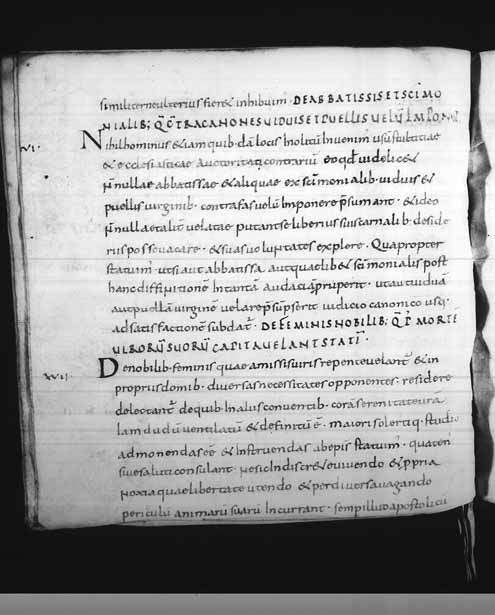 similiter ne ulterius fieret inhibuim̄. DEABBATISSIS ET SCIMO
NIALIB; Q̄ CŌTRA CANONES VIDUIS ET PUELLIS VELŪ IMPONT
VI. Nihilhominus etiam quib·dā locis inolitū invenim̄ usū stultitiae
et ecclesiasticae auctoritati contrariū eo qđ videlicet
ñ nullae abbatissae et aliquae ex scīmonialib· viduis et
puellis virginib· contra fas velū imponere p̄sumant· et ideo
ñ nullae taliter velatae putant se liberius suis carnalib· deside
riis posse vacare· et suas voluptates explere· Quapropter
statuim̄ ut si aut abbatissa aut quaelibet scīmonialis post
hanc diffinitionē in tantā audaciā pruperit· ut aut viduā
aut puellā virginē velare p̄sūpserit iudicio canonico usq;
ad satisfactionē subdat̄· DE FEMINIS NOBILIB; Q̄ P̄ MORTE
VIRORŪ SUORŪ CAPITA VELANT STATĪ·
XVII. De nobilib· feminis quae amissis viris repente velant̄ et in
propriis domib· diversas necessitates opponentes· residere
delectant̄ de quib· in aliis conventib· corā serenitate vrā
iam dudū ventilatū et definitū ē· maiori solertiq· studio
admonendas eē et instruendas ab epis statuim̄· quaten̄
suae saluti consulant· nec sic indiscrete vivendo et p̄pria
noxia quae libertate utendo et per diversa vagando
periculū animarū suarū incurrant· semp illud apostolicū